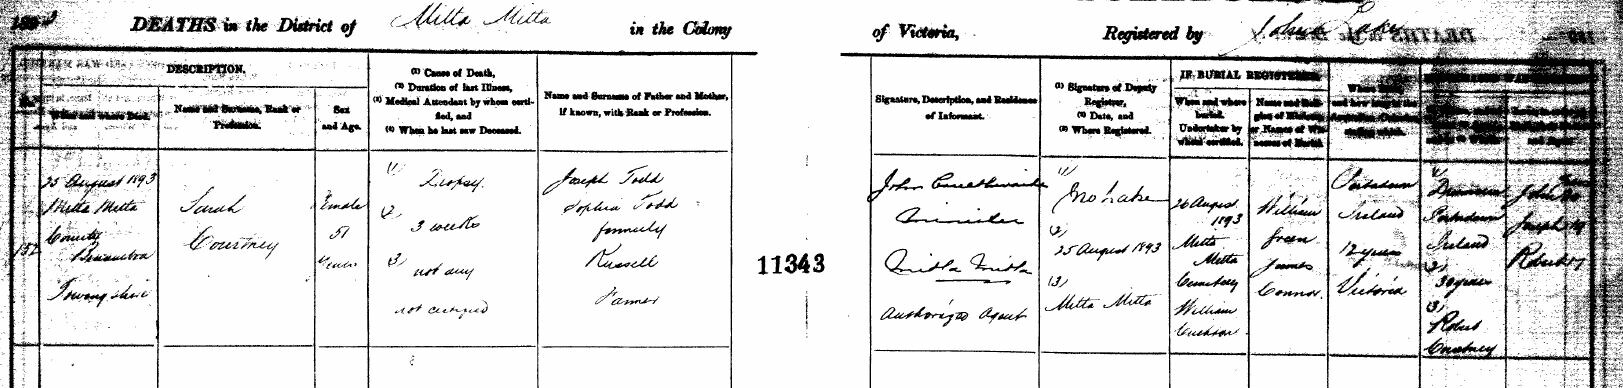 1893 DEATHS in the District of Mitta Mitta in the Colony of Victoria, Registered by John Lake
DESCRIPTION.
When and where Died.
Name and Surname, Rank or
Profession.
Sex
and Age.
(1) Cause of Death,
(2) Duration of last Illness,
(3) Medical Attendant by whom certi-
fied, and
(4) When he last saw Deceased.
Name and Surname of Father and Mother,
if known, with Rank or Profession.
Signature, Description, and Residence
of Informant.
(1) Signature of Deputy
Registrar,
(2) Date, and
(3) Where Registered.
IF BURIAL REGISTERED.
When and where
buried.
Undertaker by
whom certified.
Name and Reli-
gion of Minister,
or Names of Wit-
nesses of Burial.
Where Born,
and how long in the
Australian Colonies,
stating which.
152
25 August 1893
Mitta Mitta
County
Benambra
Towong Shire
Sarah
Courtney
Female
51
Years
(1) Dropsy.
(2) 3 weeks
(3) not any
not certified
Joseph Todd
Sophia Todd
formerly
Russell
Farmer
11343
John
Minister
Mitta Mitta
Authorized Agent
(1)
Jno Lake
(2)
25 August 1893
(3)
Mitta Mitta
26 August
1893
Mitta
Mitta
Cemetery
William
William
Green
James
Connor.
Portadown
Ireland
12 years
Victoria
(1)
Portadown
Ireland
(2)
30 years
(3)
Robert
Courtney
John
Joseph
Robert 17